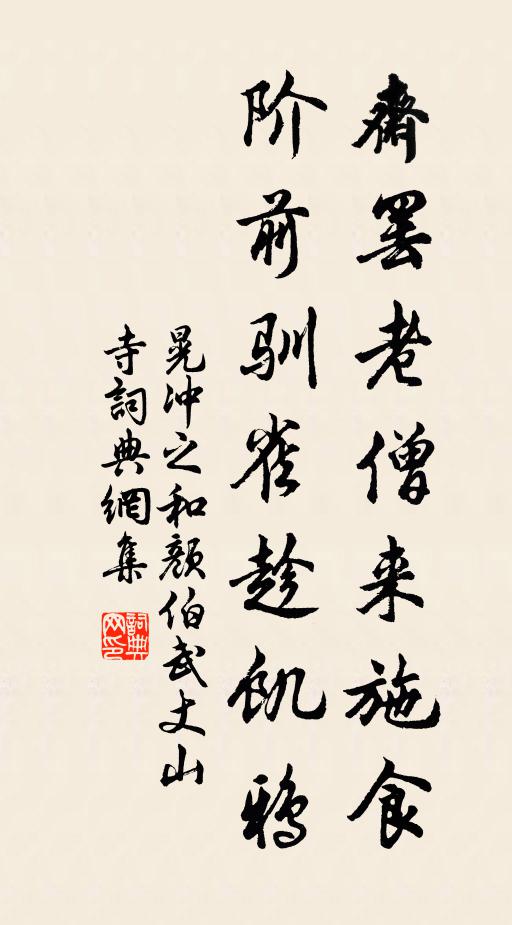 齋罢老僧来施食
阶前驯雀趁饥鸦
晁冲之和颜伯武丈山
寺詞典網集
詞典
网印